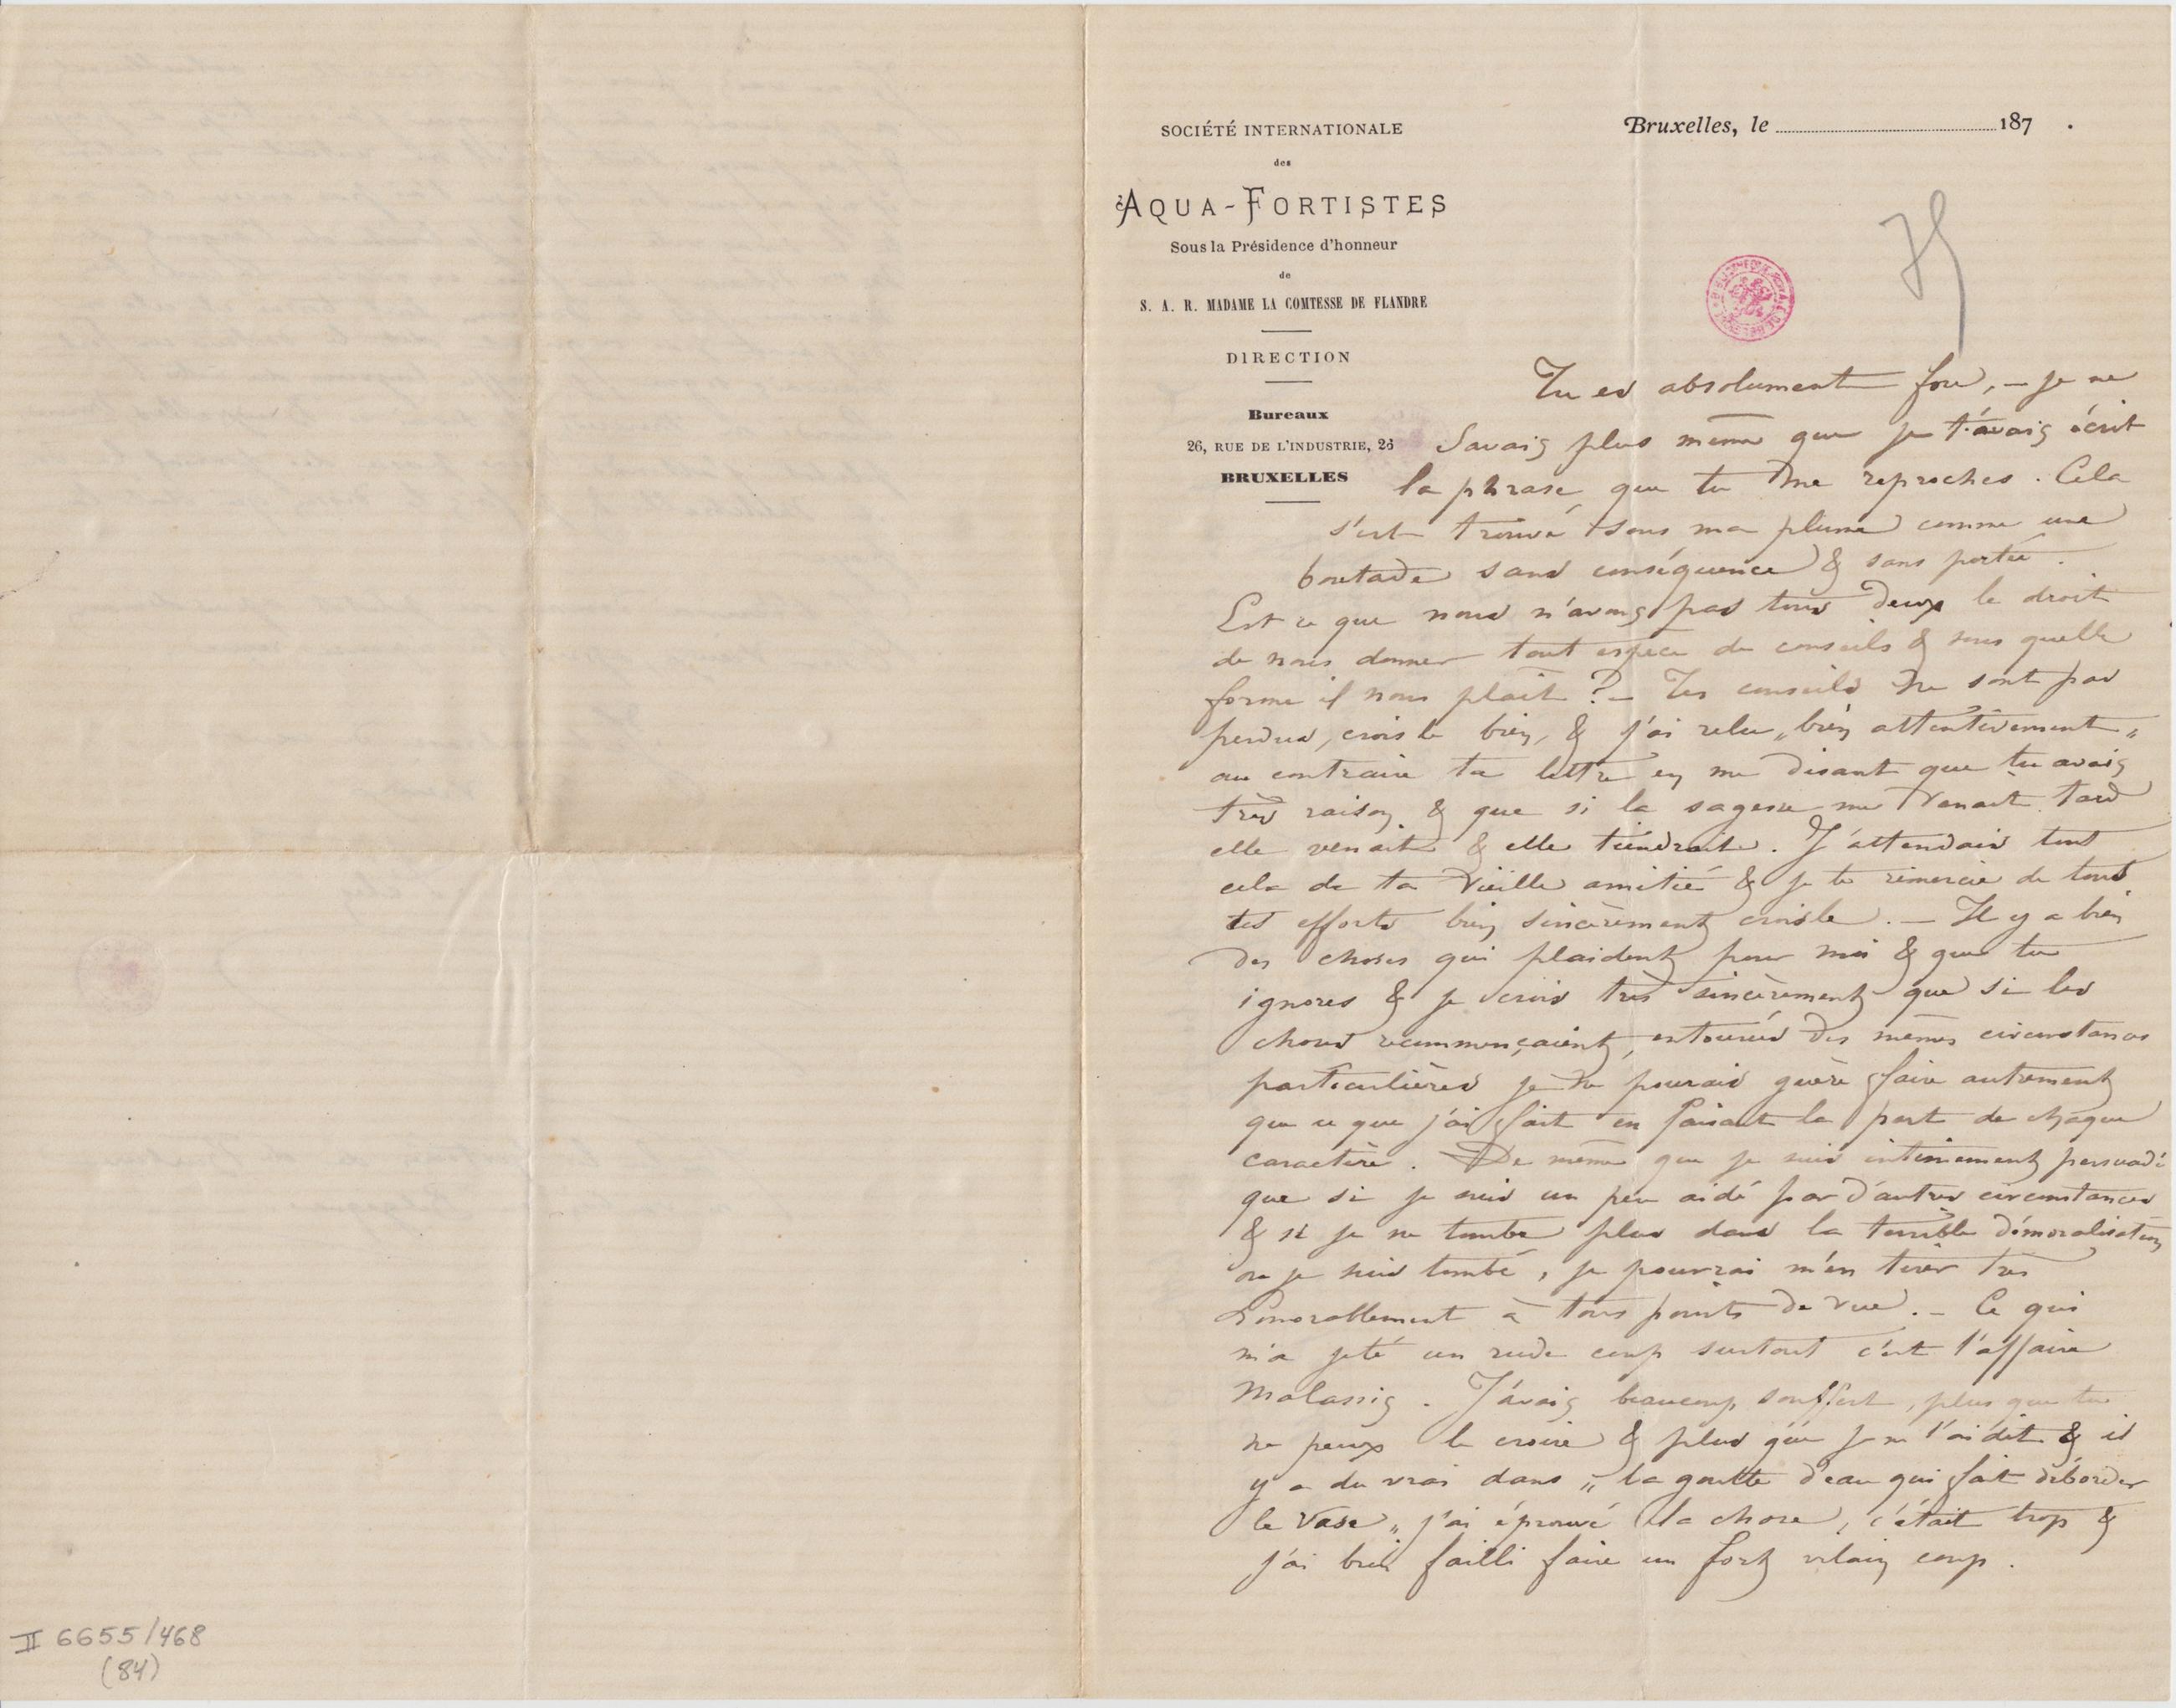 SOCIÉTÉ INTERNATIONALE
des
AQUA-FORTISTES
Sous la Présidence d'honneur
de
S. A. R. MADAME LA COMTESSE DE FLANDRE
DIRECTION
Bureaux
26, RUE DE L'INDUSTRIE, 26
BRUXELLES
Bruxelles, le 187 .
Tu es absolument fou, — je ne
savais plus même que je t'avais écrit
la phrase que tu me reproches. Cela
s'est trouvé sous ma plume comme une
boutade sans conséquence & sans portée.
Est ce que nous n'avons pas tous deux le droit
de nous donner tout espèce de conseils & sous quelle
forme il nous plait ? — Tes conseils ne sont pas
perdus, crois le bien, & j'ai relu „bien attentivement"
au contraire ta lettre en me disant que tu avais
très raison & que si la sagesse me venait tard
elle venait & elle tiendrait. J'attendais tout
cela de ta vieille amitié & je te remercie de tous
tes efforts bien sincèrement crois le. — Il y a bien
des choses qui plaident pour moi & que tu
ignores & je crois très sincèrement que si les
choses recommençaient, entourées des mêmes circonstances
particulières je ne pourais guère faire autrement
que ce que j'ai fait en faisant la part de chaque
caractère. De même que je suis intimement persuadé
que si je suis un peu aidé par d'autres circonstances
& si je ne tombe plus dans la terrible démoralisation
ou je suis tombé, je pourrai m'en tirer très
honorablement à tous points de vue. — Ce qui
m'a jeté un rude coup surtout c'est l'affaire
Malassis. J'avais beaucoup souffert, plus que tu
ne peux le croire & plus que je ne t'ai dit & il
y a du vrai dans „la goutte d'eau qui fait déborder
le vase" j'ai éprouvé la chose, c'était trop &
j'ai bien failli faire un fort vilain coup.
II 6655/468
(84)